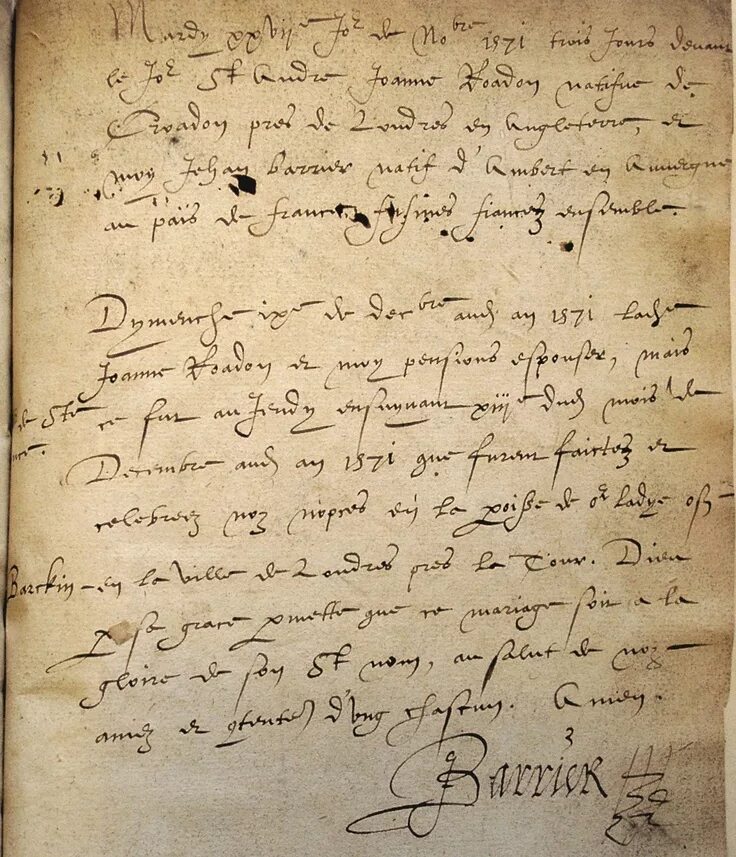 Mardy xxvije Jor de Nobre 1571 trois Jours devant
le Jor St Andre Joanne Roadon natifue de
Croadon pres de Londres en Angleterre, et
moy Jehan Barrier natif d'Ambert en Auvergne
au païs de france fusmes fiancez ensemble.
Dymenche ixe de decbre aud an 1571 ladte
Joanne Roadon et moy pensions espouser, mais
de Ste
ce fut au Jeudy ensuyvant xiije dud mois de
Decembre aud an 1571 que furent faictez et
celebreez noz nopces en la poisse de or ladye of
Barckin - en la ville de Londres pres la Tour. Dieu
p se grace pmette que ce mariage soit a la
gloire de son St nom, au salut de noz
amez et d'ung chascun. Amen.
Barrier